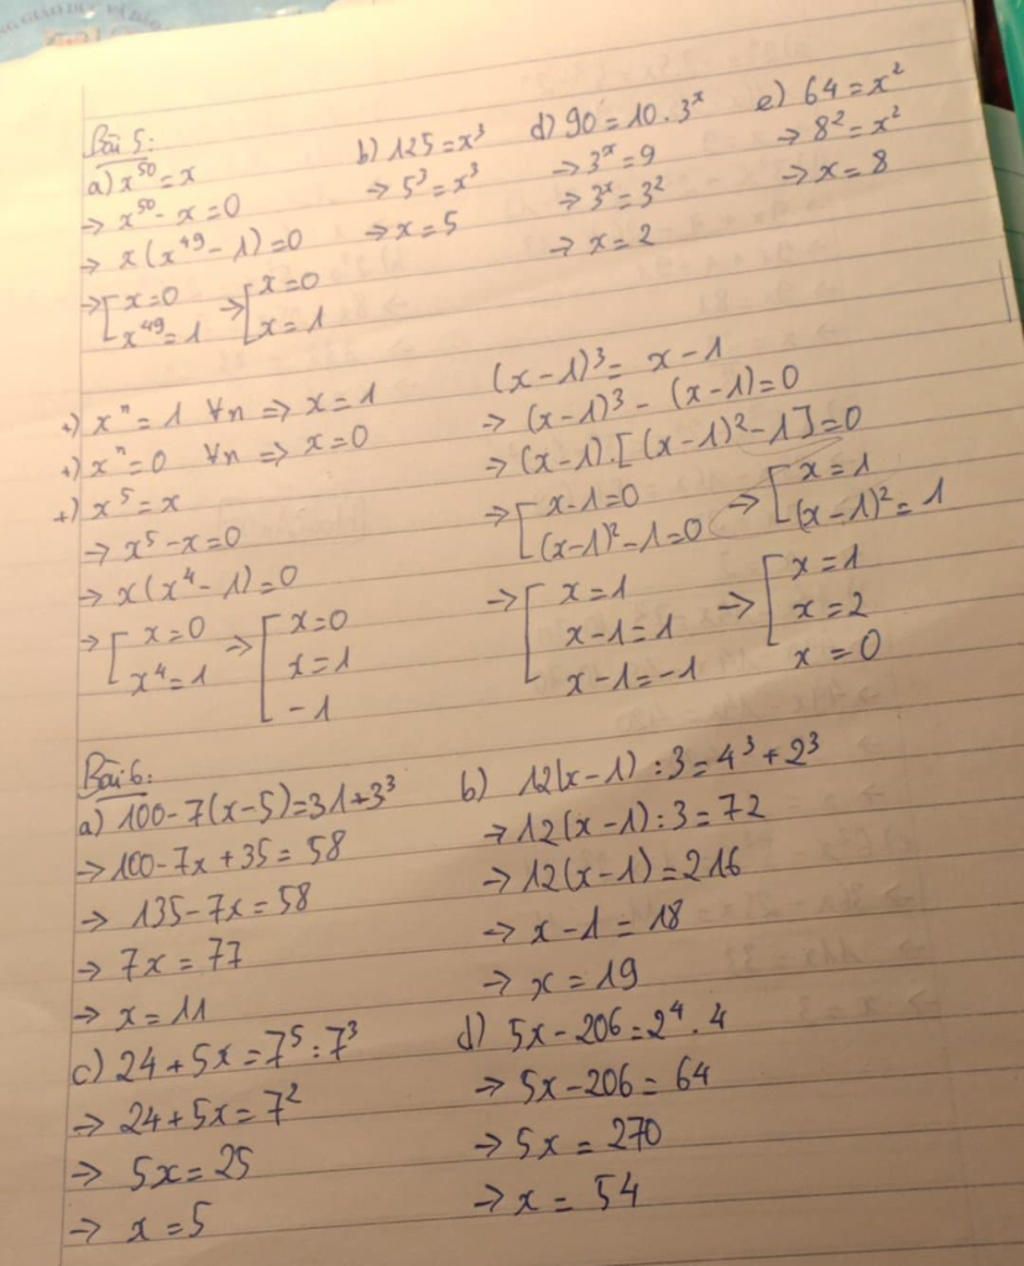 Bài 5:
a) x⁵⁰ = x
→ x⁵⁰ - x = 0
→ x(x⁴⁹ - 1) = 0
→ [ x = 0 → [ x = 0
x⁴⁹ = 1 x = 1
b) 125 = x³
→ 5³ = x³
→ x = 5
d) 90 = 10 . 3ˣ
→ 3ˣ = 9
→ 3ˣ = 3²
→ x = 2
e) 64 = x²
→ 8² = x²
→ x = 8
+) xⁿ = 1 ∀n ⇒ x = 1
+) xⁿ = 0 ∀n ⇒ x = 0
+) x⁵ = x
→ x⁵ - x = 0
→ x(x⁴ - 1) = 0
→ [ x = 0 → [ x = 0
x⁴ = 1 x = 1
- 1
(x - 1)³ = x - 1
→ (x - 1)³ - (x - 1) = 0
→ (x - 1).[(x - 1)² - 1] = 0
→ [ x - 1 = 0 → [ x = 1
(x - 1)² - 1 = 0 (x - 1)² = 1
→ [ x = 1 → [ x = 1
x - 1 = 1 x = 2
x - 1 = -1 x = 0
Bài 6:
a) 100 - 7(x - 5) = 31 + 3³
→ 100 - 7x + 35 = 58
→ 135 - 7x = 58
→ 7x = 77
→ x = 11
b) 12(x - 1) : 3 = 4³ + 2³
→ 12(x - 1) : 3 = 72
→ 12(x - 1) = 216
→ x - 1 = 18
→ x = 19
c) 24 + 5x = 7⁵ : 7³
→ 24 + 5x = 7²
→ 5x = 25
→ x = 5
d) 5x - 206 = 2⁴ . 4
→ 5x - 206 = 64
→ 5x = 270
→ x = 54